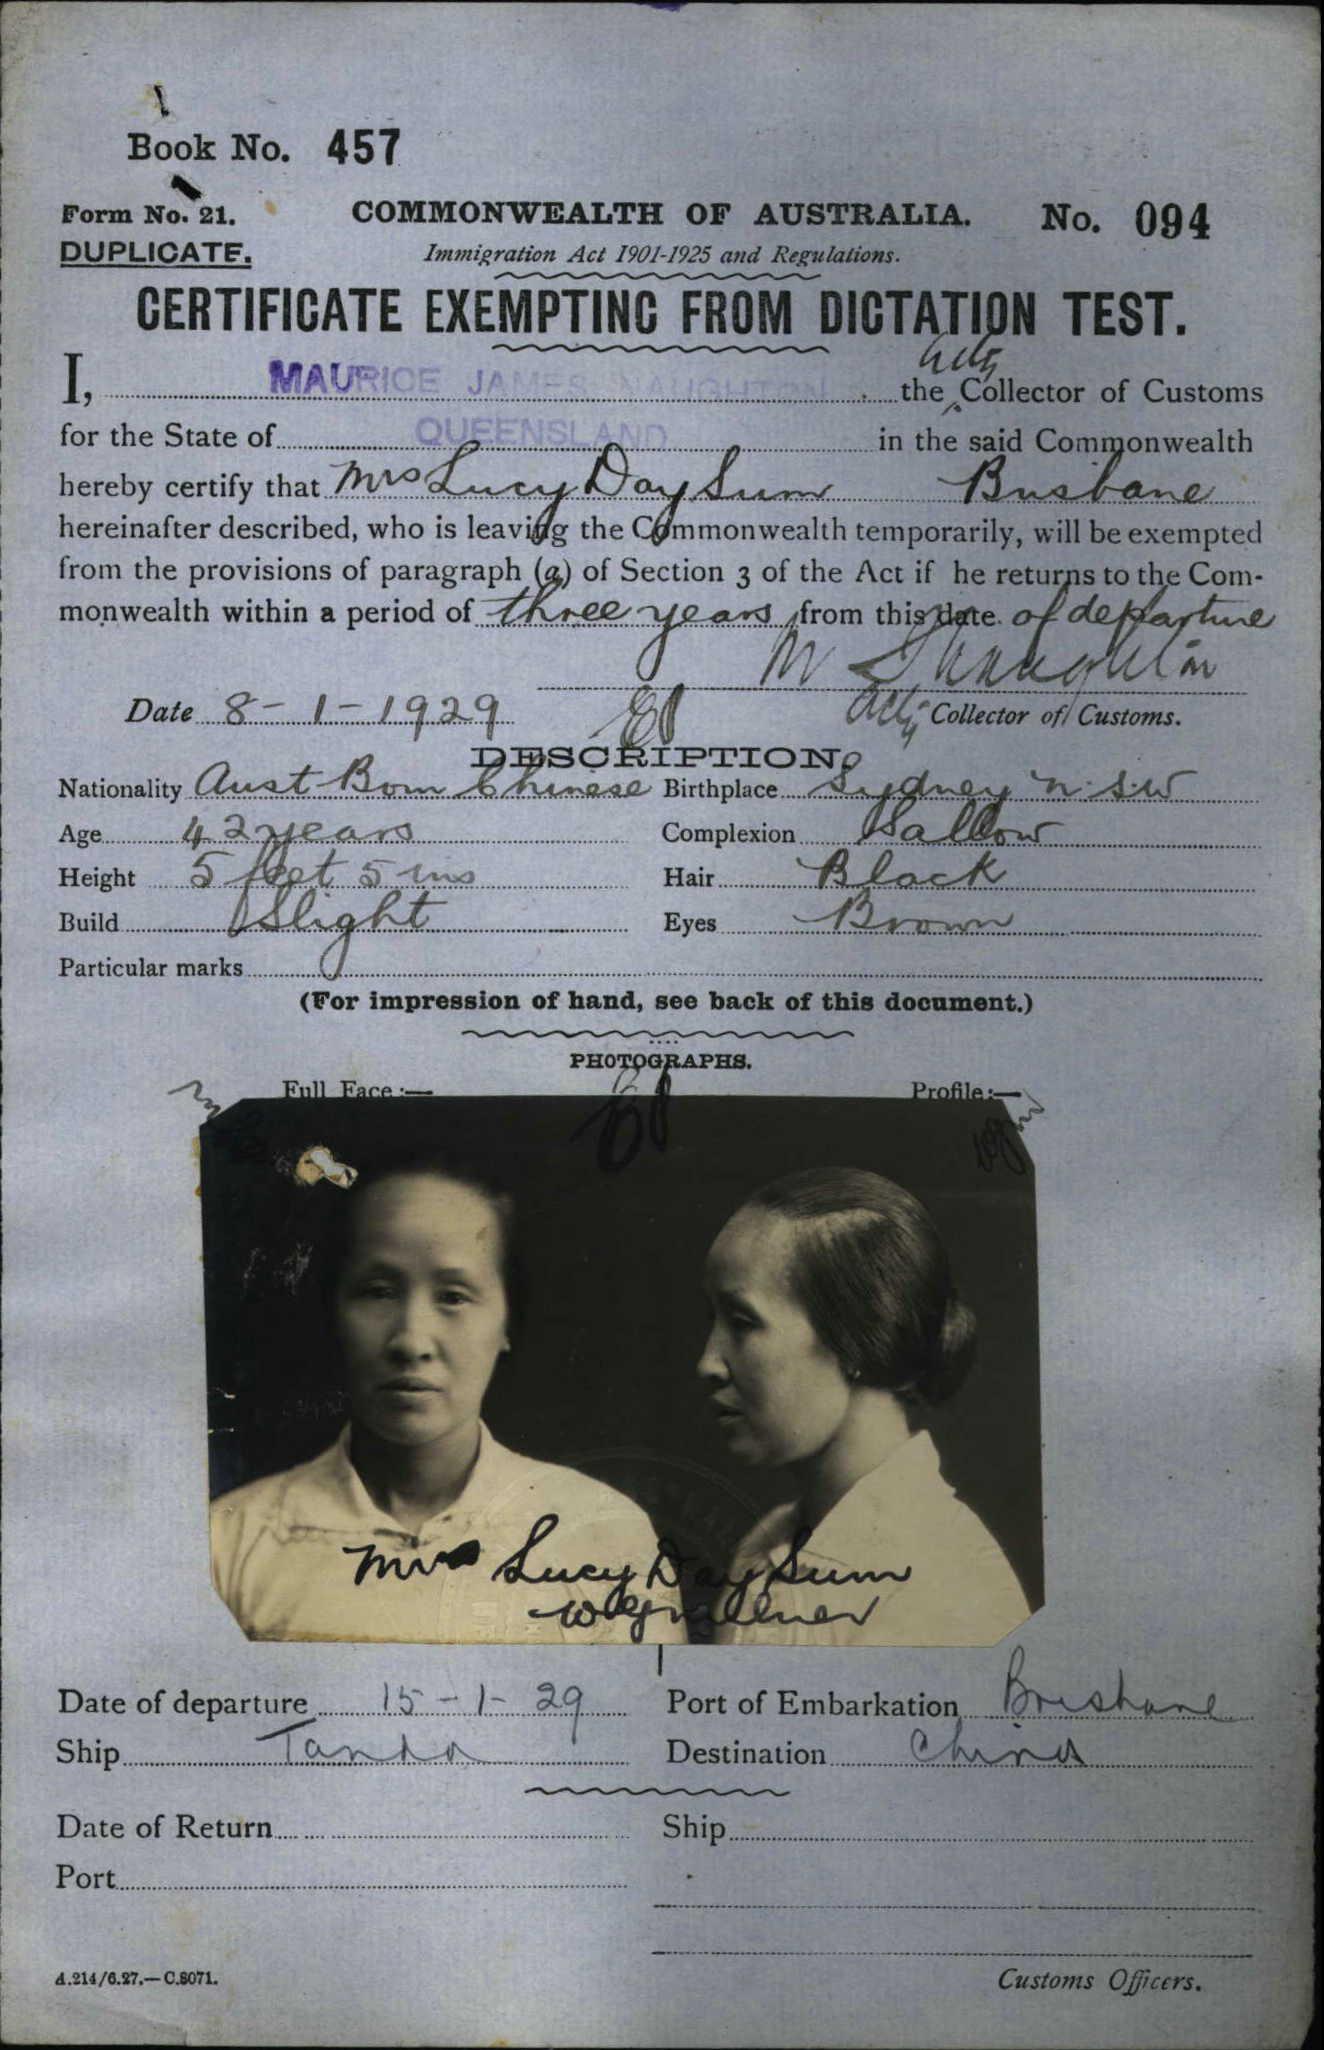 Book No. 457
Form No. 21. COMMONWEALTH OF AUSTRALIA. No. 094
DUPLICATE. Immigration Act 1901-1925 and Regulations.
CERTIFICATE EXEMPTING FROM DICTATION TEST.
actg
I, MAURICE JAMES NAUGHTON the Collector of Customs
for the State of QUEENSLAND in the said Commonwealth
hereby certify that Mrs Lucy Day Sum Brisbane
hereinafter described, who is leaving the Commonwealth temporarily, will be exempted
from the provisions of paragraph (a) of Section 3 of the Act if he returns to the Com-
monwealth within a period of three years from this date of departure
M J Naughton
Date 8-1-1929 Actg Collector of Customs.
DESCRIPTION
Nationality Aust Born Chinese Birthplace Sydney N.S.W
Age 42 years Complexion Sallow
Height 5 feet 5 ins Hair Black
Build Slight Eyes Brown
Particular marks
(For impression of hand, see back of this document.)
PHOTOGRAPHS.
Full Face:— Profile:—
Mrs Lucy Day Sum
Date of departure 15-1-29 Port of Embarkation Brisbane
Ship Tanda Destination China
Date of Return Ship
Port
A.214/6.27.—C.8071. Customs Officers.